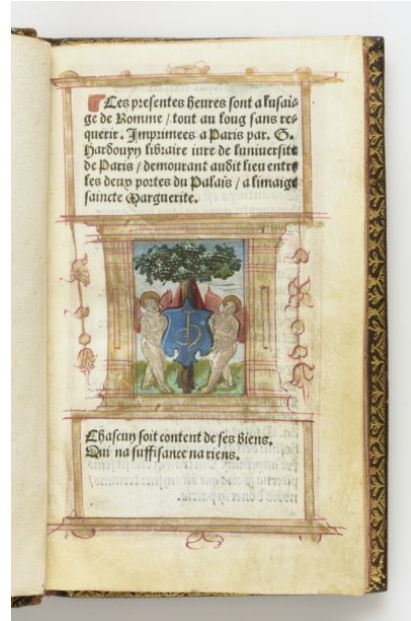 Les presentes heures sont a lusai-
ge de Romme / tout au long sans re-
querir. Imprimees a Paris par. G.
Hardouyn libraire iure de luniuersite
de Paris / demourant audit lieu entre
les deux portes du Palais / a limaige
saincte Marguerite.
Chascun soit content de ses biens.
Qui na suffisance na riens.